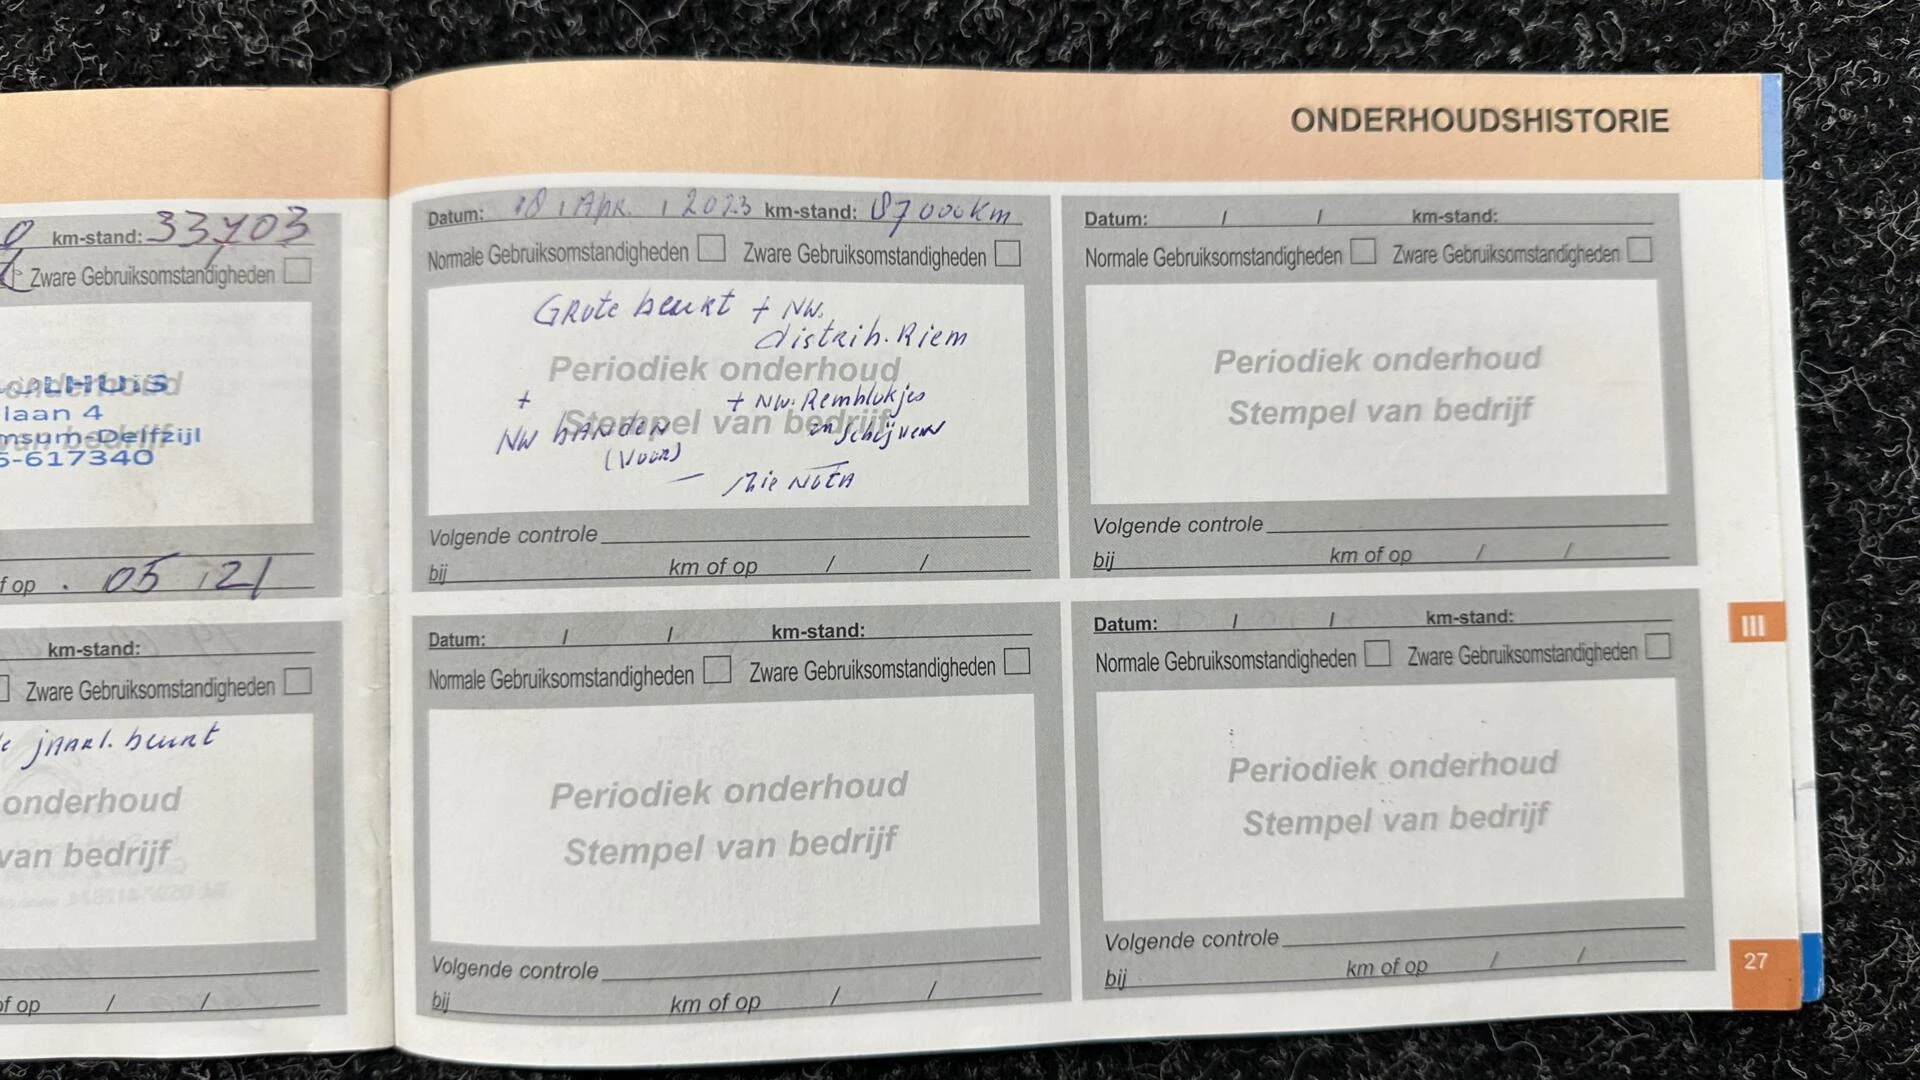 ONDERHOUDSHISTORIE
km-stand: 33703
Zware Gebruiksomstandigheden
laan 4
msum-Delfzijl
5-617340
f op . 05 / 21
km-stand:
Zware Gebruiksomstandigheden
jaarl. beurt
onderhoud
van bedrijf
of op / /
Datum: 18 / Apr. / 2023 km-stand: 87000km
Normale Gebruiksomstandigheden Zware Gebruiksomstandigheden
Grote beurt + NW.
distrib. Riem
Periodiek onderhoud
+ + NW. Remblokjes
Stempel van bedrijf
NW banden en schijven
(Voor)
— zie Nota
Volgende controle
bij km of op / /
Datum: / / km-stand:
Normale Gebruiksomstandigheden Zware Gebruiksomstandigheden
Periodiek onderhoud
Stempel van bedrijf
Volgende controle
bij km of op / /
Datum: / / km-stand:
Normale Gebruiksomstandigheden Zware Gebruiksomstandigheden
Periodiek onderhoud
Stempel van bedrijf
Volgende controle
bij km of op / /
Datum: / / km-stand:
Normale Gebruiksomstandigheden Zware Gebruiksomstandigheden
Periodiek onderhoud
Stempel van bedrijf
Volgende controle
bij km of op / /
III
27